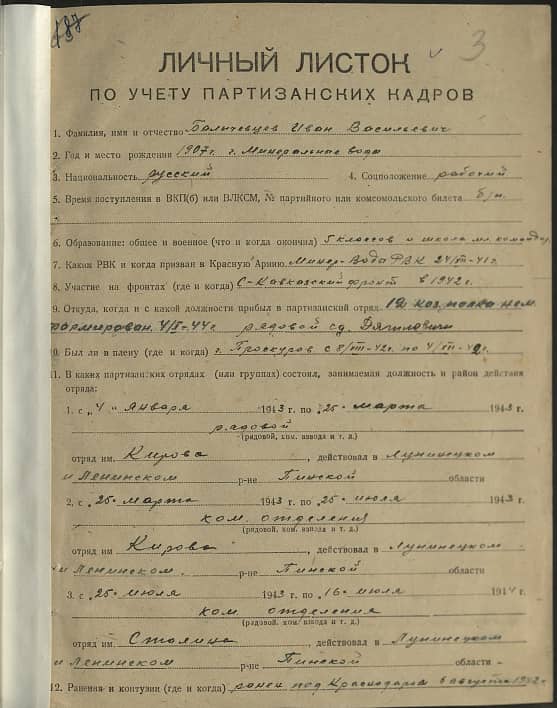 187
3
ЛИЧНЫЙ ЛИСТОК
ПО УЧЕТУ ПАРТИЗАНСКИХ КАДРОВ
1. Фамилия, имя и отчество Иван Васильевич
2. Год и место рождения 1907 г. г. Минеральные воды
3. Национальность русский 4. Соцположение рабочий
5. Время поступления в ВКП(б) или ВЛКСМ, № партийного или комсомольского билета б/п.
6. Образование: общее и военное (что и когда окончил) 5 классов и школа мл. командир.
7. Каким РВК и когда призван в Красную Армию Минер-Вода РВК
8. Участие на фронтах (где и когда) С-Кавказский фронт в 1942 г.
9. Откуда, когда и с какой должности прибыл в партизанский отряд. каз. полка нем.
рядовой
0. Был ли в плену (где и когда) г. Проскуров
11. В каких партизанских отрядах (или группах) состоял, занимаемая должность и район действия
отряда:
1. с „4" Января 1943 г. по „25" марта 1943 г.
рядовой
(рядовой, ком. взвода и т. д.)
отряд им. Кирова, действовал в Лунинецком
и Ленинском р-не Пинской области
2. с „25" марта 1943 г. по „25" июля 1943 г.
ком. отделения
(рядовой, ком. взвода и т. д.)
отряд им. Кирова, действовал в Лунинецком
и Ленинском р-не Пинской области
3. с „25" июля 1943 г. по „16" июля 1944 г.
ком. отделения
(рядовой, ком. взвода и т. д.)
отряд им. Сталина, действовал в Лунинецком
и Ленинском р-не Пинской области
12. Ранения и контузии (где и когда) ранен под Краснодаром 6 августа 1942 г.